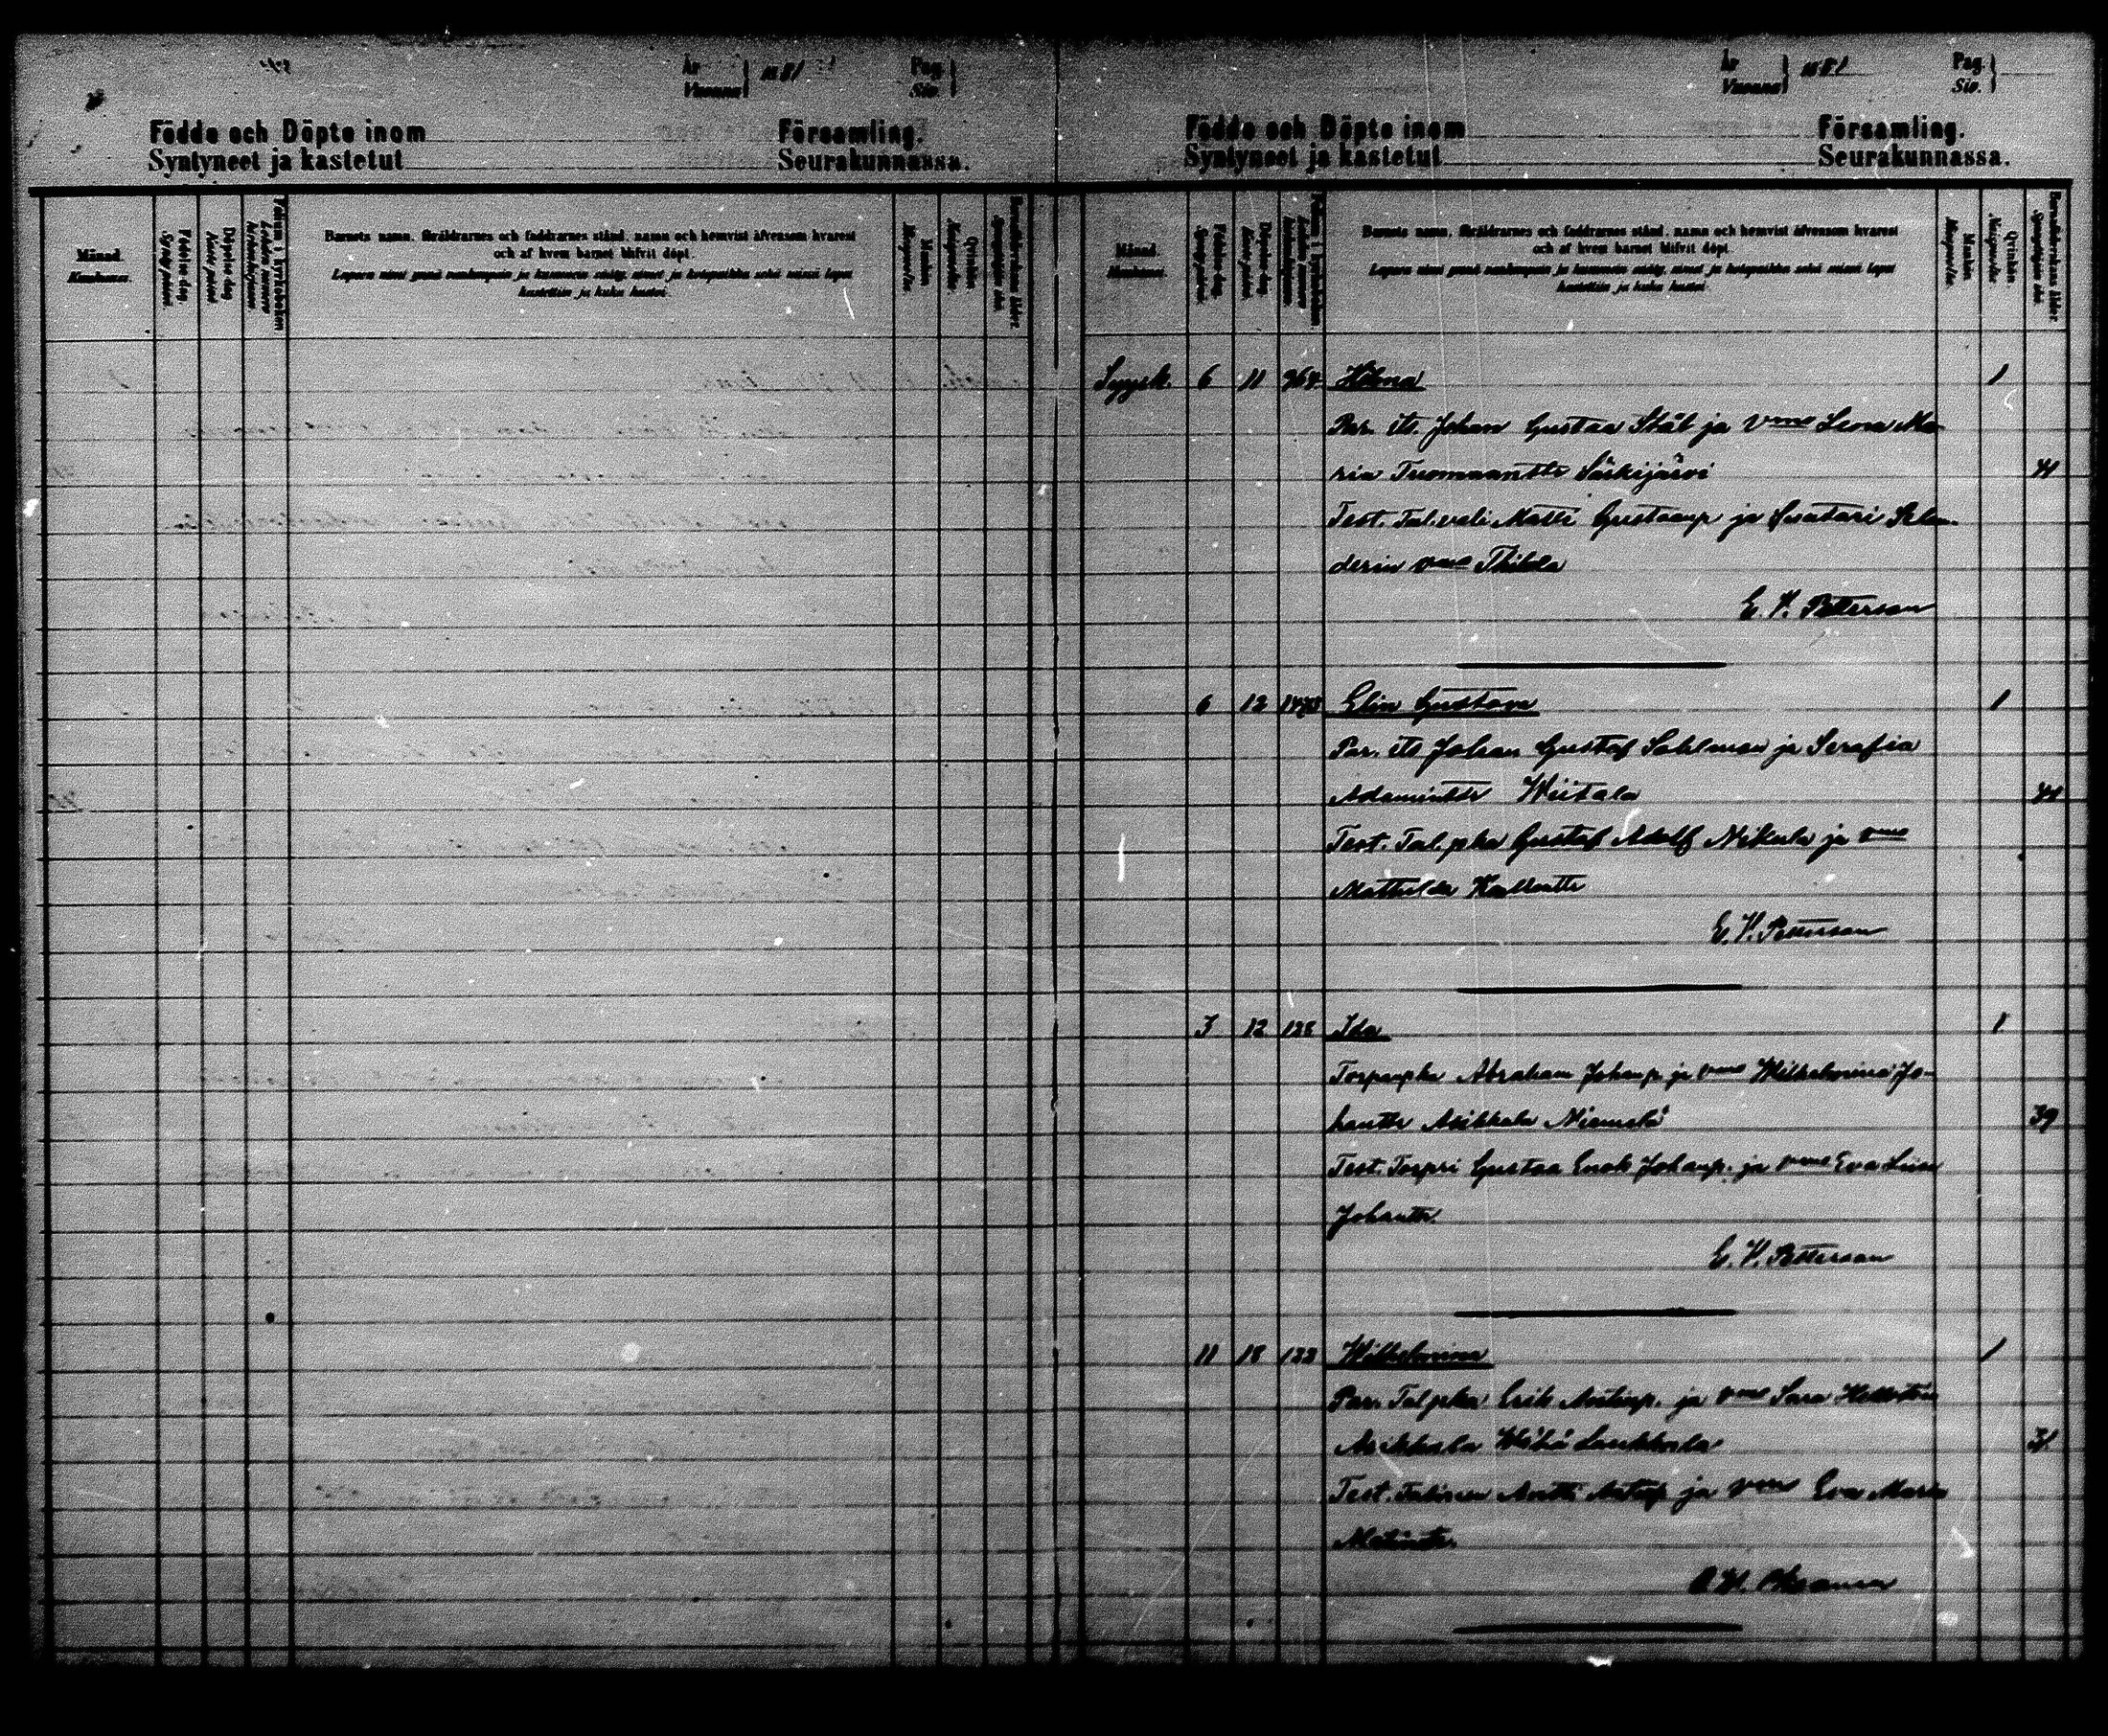 År
Vuonna } 1881
Pag.
Siv. }
Födde och Döpte inom Församling.
Syntyneet ja kastetut Seurakunnassa.
Månad. Kuukausi.
Födelse dag. Syntymä päivä.
Döpelse dag. Kaste päivä.
Folium i kyrkoboken. Lehden numero kirkonkirjassa.
Barnets namn, föräldrarnes och faddrarnes stånd, namn och hemvist äfvensom hvarest
och af hvem barnet blifvit döpt.
Lapsen nimi ynnä vanhempain ja kummein sääty, nimet ja kotopaikka sekä missä lapsi
kastettiin ja kuka kastoi.
Mankön. Miespuolia.
Qvinkön. Naispuolia.
Barnaföderskans ålder. Synnyttäjän ikä.
År
Vuonna } 1881
Pag.
Siv. }
Födde och Döpte inom Församling.
Syntyneet ja kastetut Seurakunnassa.
Månad. Kuukausi.
Födelse dag. Syntymä päivä.
Döpelse dag. Kaste päivä.
Folium i kyrkoboken. Lehden numero kirkonkirjassa.
Barnets namn, föräldrarnes och faddrarnes stånd, namn och hemvist äfvensom hvarest
och af hvem barnet blifvit döpt.
Lapsen nimi ynnä vanhempain ja kummein sääty, nimet ja kotopaikka sekä missä lapsi
kastettiin ja kuka kastoi.
Mankön. Miespuolia.
Qvinkön. Naispuolia.
Barnaföderskans ålder. Synnyttäjän ikä.
Syysk. 6 11 964 Hilma 1
Par. its. Johan Gustaa Ståt ja vmo Leena Ma-
ria Tuomaantr Särkijärvi 41
Test. Tal. veli Matti Gustaanp ja Suutari
derin vmo Thilda
E. V. Petterson
6 12 Elin Gustava 1
Par. its Johan Gustaf Sahlman ja Serafia
Adamintr Wiitala 41
Test. Tal. pka Gustaf Adolf Nikula ja vmo
Mathilda Kallentr
E. V. Petterson
3 12 128 Ida 1
Torpanpka Abraham Johanp. ja vmo Wilhelmina Jo-
hantr Asikkala Niemelä 39
Test. Torpri Gustaa Enok Johanp. ja vmo Eva Liisa
Johantr.
E. V. Petterson
11 18 122 Wilhelmina 1
Par. Tal pka Erik Antinp. ja vmo Sara Hellsten
Asikkala Wähä Laukkala
Test. Talinen Antti Antinp ja vmo Eva Maria
Matintr.